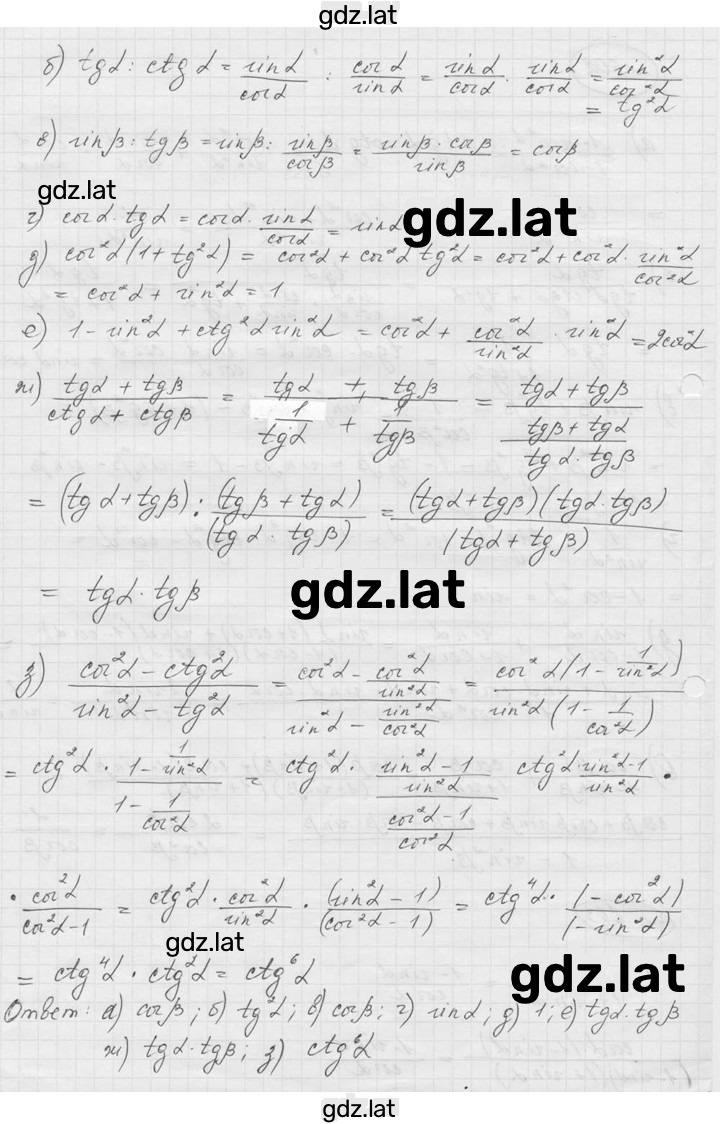 gdz.lat
б) tgα : ctg α = sinα/cosα : cosα/sinα = sinα/cosα · sinα/cosα = sin²α/cos²α
= tg²α
в) sinβ : tgβ = sinβ : sinβ/cosβ = sinβ · cosβ/sinβ = cosβ
gdz.lat
г) cosα · tgα = cosα · sinα/cosα = sinα
gdz.lat
д) cos²α(1 + tg²α) = cos²α + cos²α tg²α = cos²α + cos²α · sin²α/cos²α
= cos²α + sin²α = 1
е) 1 - sin²α + ctg²α sin²α = cos²α + cos²α/sin²α · sin²α = 2cos²α
ж) (tgα + tgβ)/(ctgα + ctgβ) = (tgα + tgβ)/(1/tgα + 1/tgβ) = (tgα + tgβ)/((tgβ + tgα)/(tgα · tgβ))
= (tgα + tgβ) : (tgβ + tgα)/(tgα · tgβ) = (tgα + tgβ)(tgα · tgβ)/(tgα + tgβ)
= tgα · tgβ
gdz.lat
з) (cos²α - ctg²α)/(sin²α - tg²α) = (cos²α - cos²α/sin²α)/(sin²α - sin²α/cos²α) = cos²α(1 - 1/sin²α)/(sin²α(1 - 1/cos²α))
= ctg²α · (1 - 1/sin²α)/(1 - 1/cos²α) = ctg²α · ((sin²α - 1)/sin²α)/((cos²α - 1)/cos²α) ctg²α · (sin²α - 1)/sin²α ·
· cos²α/(cos²α - 1) = ctg²α · cos²α/sin²α · (sin²α - 1)/(cos²α - 1) = ctg⁴α · (-cos²α)/(-sin²α)
gdz.lat
= ctg⁴α · ctg²α = ctg⁶α
gdz.lat
Ответ: а) cosβ; б) tg²α; в) cosβ; г) sinα; д) 1; е) tgα · tgβ
ж) tgα · tgβ; з) ctg⁶α
gdz.lat